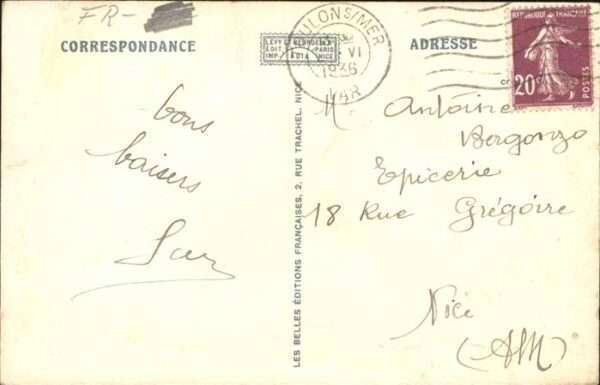 FR-
CORRESPONDANCE
LEVY ET NEURDEIN R.
EDIT. PARIS
IMP. NICE
ADRESSE
TOULONS/MER
VI
1936
VAR
REPUBLIQUE FRANÇAISE
20c
POSTES
bons
baisers
M Antoine
Bergonzo
Epicerie
18 Rue Grégoire
Nice
(AM)
LES BELLES ÉDITIONS FRANÇAISES, 2, RUE TRACHEL, NICE